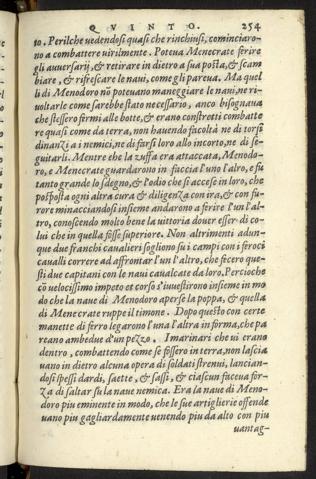 QVINTO. 254
to. Perilche vedendosi quasi che rinchiusi, cominciaro-
no a combattere virilmente. Poteva Menecrate ferire
gli auuersarij, & retirare in dietro a sua posta, & scam
biare, & rifrescare le naui, come gli pareua. Ma quel
li di Menodoro nō poteuano maneggiare le naui, ne ri-
uoltarle come sarebbe stato necessario, anco bisognaua
che stessero firmi alle botte, & erano constretti combatte
re quasi come da terra, non hauendo facoltà ne di torsi
dinanzi a i nemici, ne di farsi loro allo incorto, ne di se-
guitarli. Mentre che la zuffa era attaccata, Menodo-
ro, e Menecrate guardarono in faccia l'uno l'altro, e fu
tanto grande lo sdegno, & l'odio che si accese in loro, che
posposta ogni altra cura & diligenza con ira, & con fu-
rore minacciandosi insieme andarono a ferire l'un l'al-
tro, conoscendo molto bene la vittoria douer esser di co-
lui che in quella fosse superiore. Non altrimenti adun-
que due franchi caualieri sogliono su i campi con i feroci
caualli correre ad affrontar l'un l'altro, che fecero que-
sti due capitani con le naui caualcate da loro. Percioche
cō velocissimo impeto et corso s'inuestirono insieme in mo
do che la naue di Menodoro aperse la poppa, & quella
di Menecrate ruppe il timone. Dopo questo con certe
manette di ferro legarono l'una l'altra in forma, che pa
reano ambedue d'un pezzo. I marinari che vi erano
dentro, combattendo come se fossero in terra, non lascia
uano in dietro alcuna opera di soldati strenui, lancian-
dosi spessi dardi, saette, & sassi, & ciascun faceua for-
za di saltar su la naue nemica. Era la naue di Meno-
doro piu eminente in modo, che le sue artiglierie offende
uano piu gagliardamente venendo piu da alto con piu
vantag-